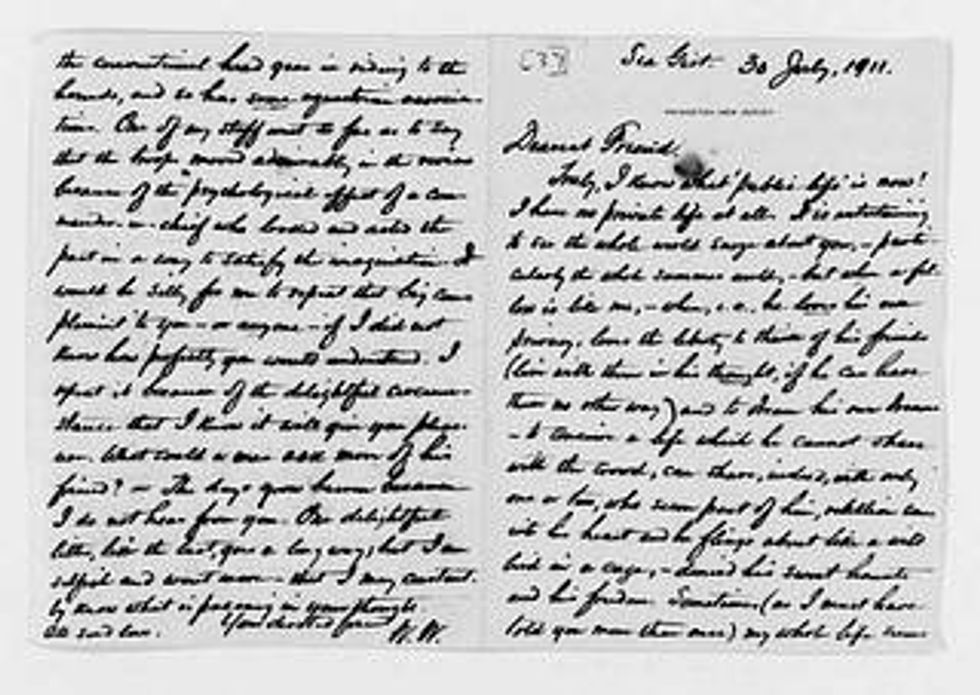 the conventional head gear in riding to the
hounds, and so has some equestrian associa-
tions. One of my staff went so far as to say
that the troops moved admirably in the review
because of the "psychological effect of a com-
mander-in-chief who looked and acted the
part in a way to satisfy the imagination. I
would be silly for me to repeat that big com-
pliment to you – or anyone – if I did not
know how perfectly you would understand. I
repeat it because of the delightful circum-
stance that I know it will give you pleas-
ure. What could a man ask more of his
friend? – The days go
I do not hear from you. One delightful
letter, like the last, goes a long way; but I am
selfish and want more – that I may constant-
ly know what is passing in your thoughts.
Your devoted friend
W. W.
(37)
Sea Girt. 30 July, 1911.
PRINCETON NEW JERSEY
Dearest Friend,
Truly, I know what 'public life' is now!
I have no private life at all. It is entertaining
to see the whole world surge about you, – parti-
cularly the whole summer world, – but when a fel-
low is like me, – when, i.e., he loves his own
privacy, loves the liberty to think of his friends
(live with them in his thought, if he can have
them no other way) and to dream his own dreams
– to conceive a life which he cannot share
with the crowd, can share, indeed, with only
one or two, who seem part of him, rebellion comes
into his heart and he flings about like a wild
bird in a cage, – denied his sweet haunts
and his freedom. Sometimes (as I must have
told you more than once) my whole life seems